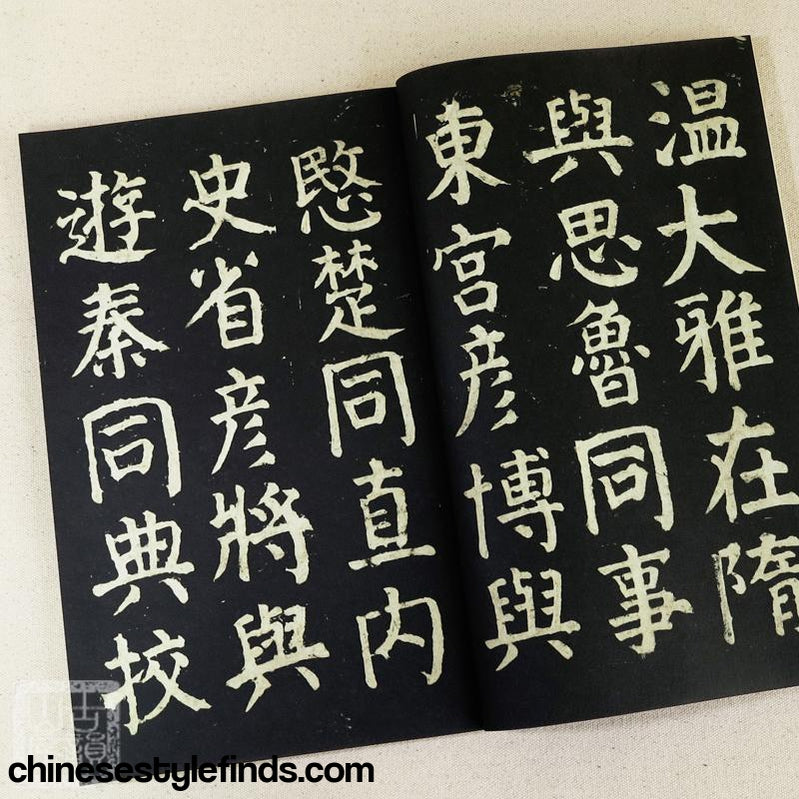 温大雅在隋
與思魯同事
東宮彦博與
愍楚同直内
史省彦將與
遊秦同典校
chinesestylefinds.com